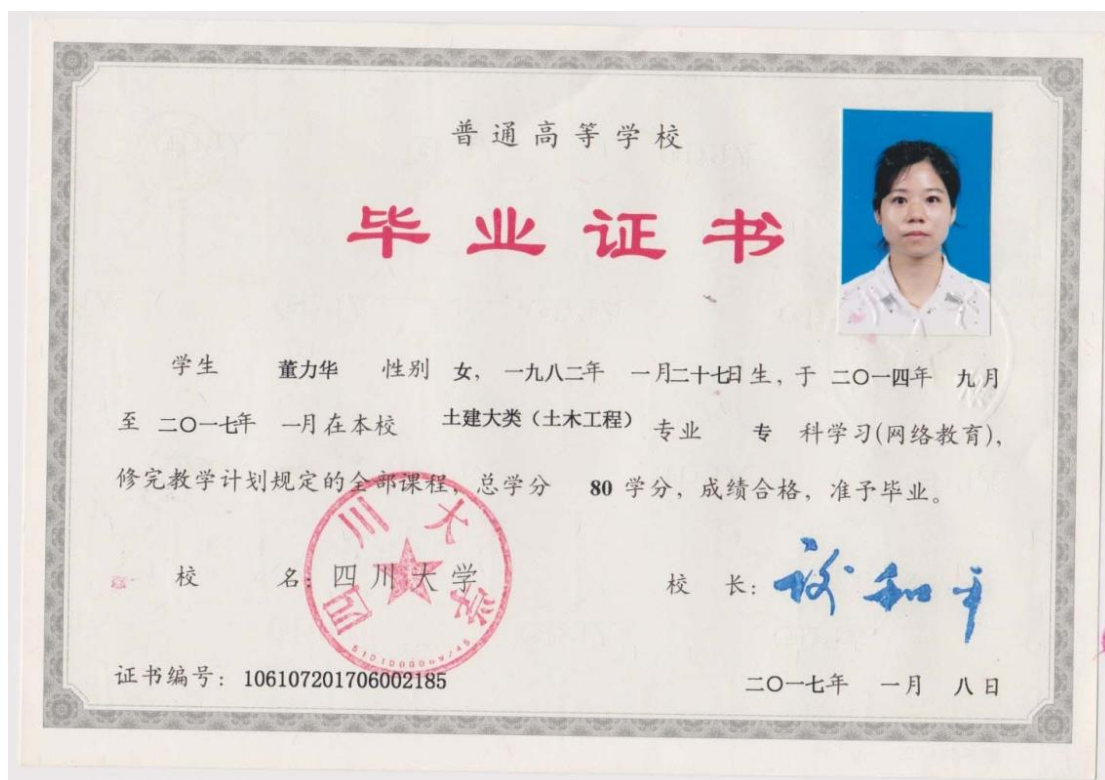 普通高等学校
毕业证书
学生 董力华 性别 女, 一九八二年 一月二十七日生, 于 二〇一四年 九月
至 二〇一七年 一月在本校 土建大类(土木工程) 专业 专 科学习(网络教育),
修完教学计划规定的全部课程, 总学分 80 学分, 成绩合格, 准予毕业。
校 名: 四川大学
四川大学
校 长: 谢和平
证书编号: 106107201706002185
二〇一七年 一月 八日